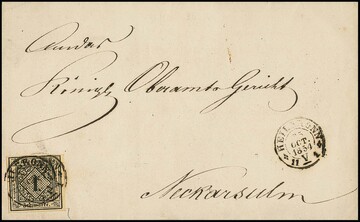 An das
Königl. Oberamts Gericht
Neckarsulm
HEILBRONN
OCT.
1851
1
HEILBRONN